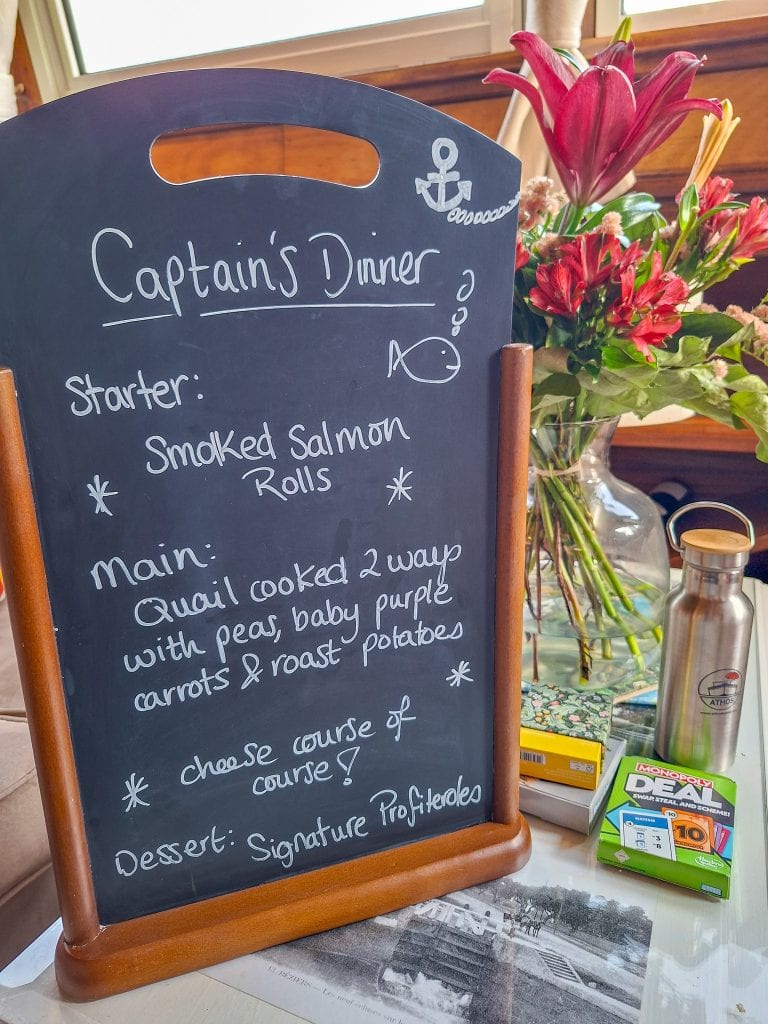 Captain's Dinner
Starter:
Smoked Salmon
Rolls
Main:
Quail cooked 2 ways
with peas, baby purple
carrots & roast potatoes
cheese course of
course!
Dessert: Signature Profiteroles
ATHOS
MONOPOLY
DEAL
SWAP, STEAL AND SCHEME!
10
10
BÉZIERS — Les neuf écluses